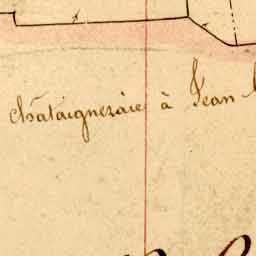 châtaigneraie à Jean